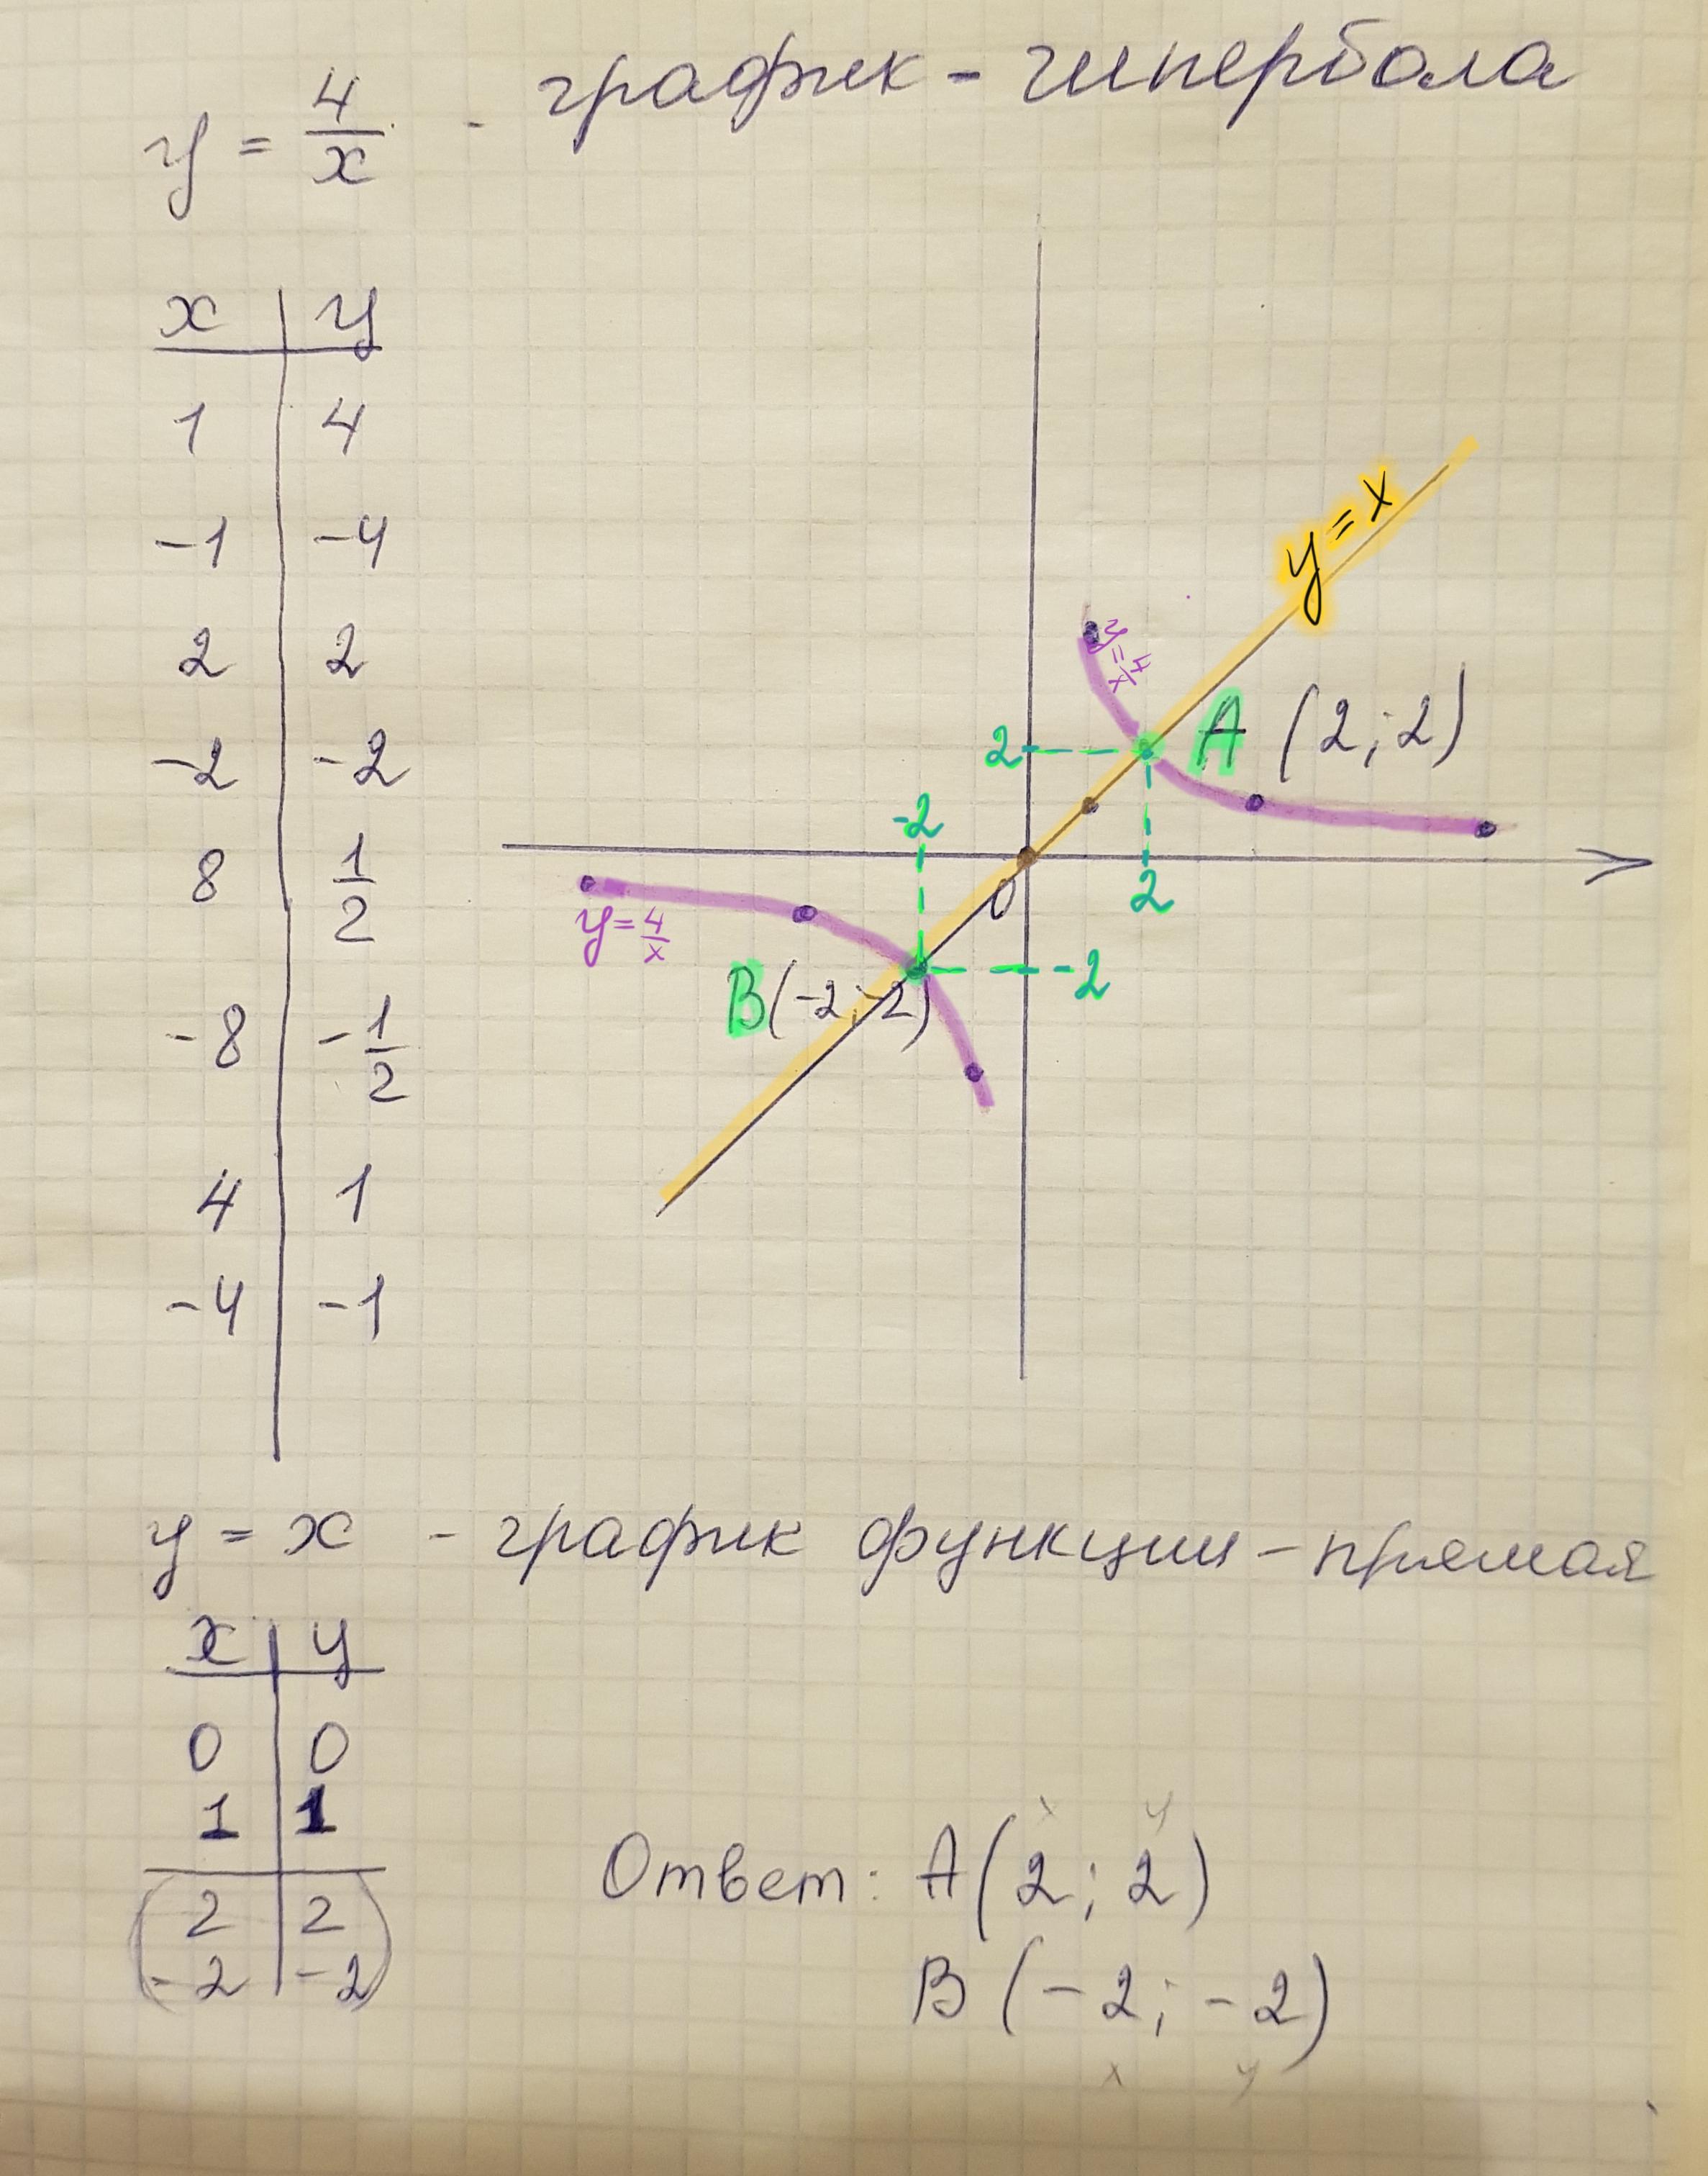 y = 4/x - график - гипербола
x | y
1 | 4
-1 | -4
2 | 2
-2 | -2
8 | 1/2
-8 | -1/2
4 | 1
-4 | -1
y = x
y = 4/x
A (2; 2)
2
-2
2
0
y = 4/x
-2
B(-2; -2)
y = x - график функции - прямая
x | y
0 | 0
1 | 1
(2 | 2
-2 | -2)
x y
Ответ: A(2; 2)
B (-2; -2)
x y